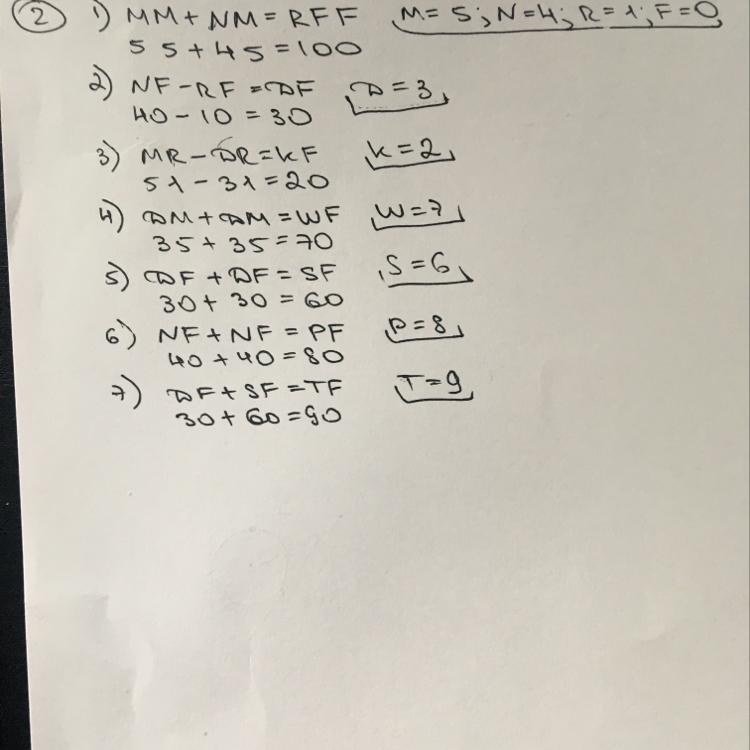 2 1) MM + NM = RFF M = 5; N = 4; R = 1; F = 0
55 + 45 = 100
2) NF - RF = DF D = 3
40 - 10 = 30
3) MR - DR = KF K = 2
51 - 31 = 20
4) DM + DM = WF W = 7
35 + 35 = 70
5) DF + DF = SF S = 6
30 + 30 = 60
6) NF + NF = PF P = 8
40 + 40 = 80
7) DF + SF = TF T = 9
30 + 60 = 90